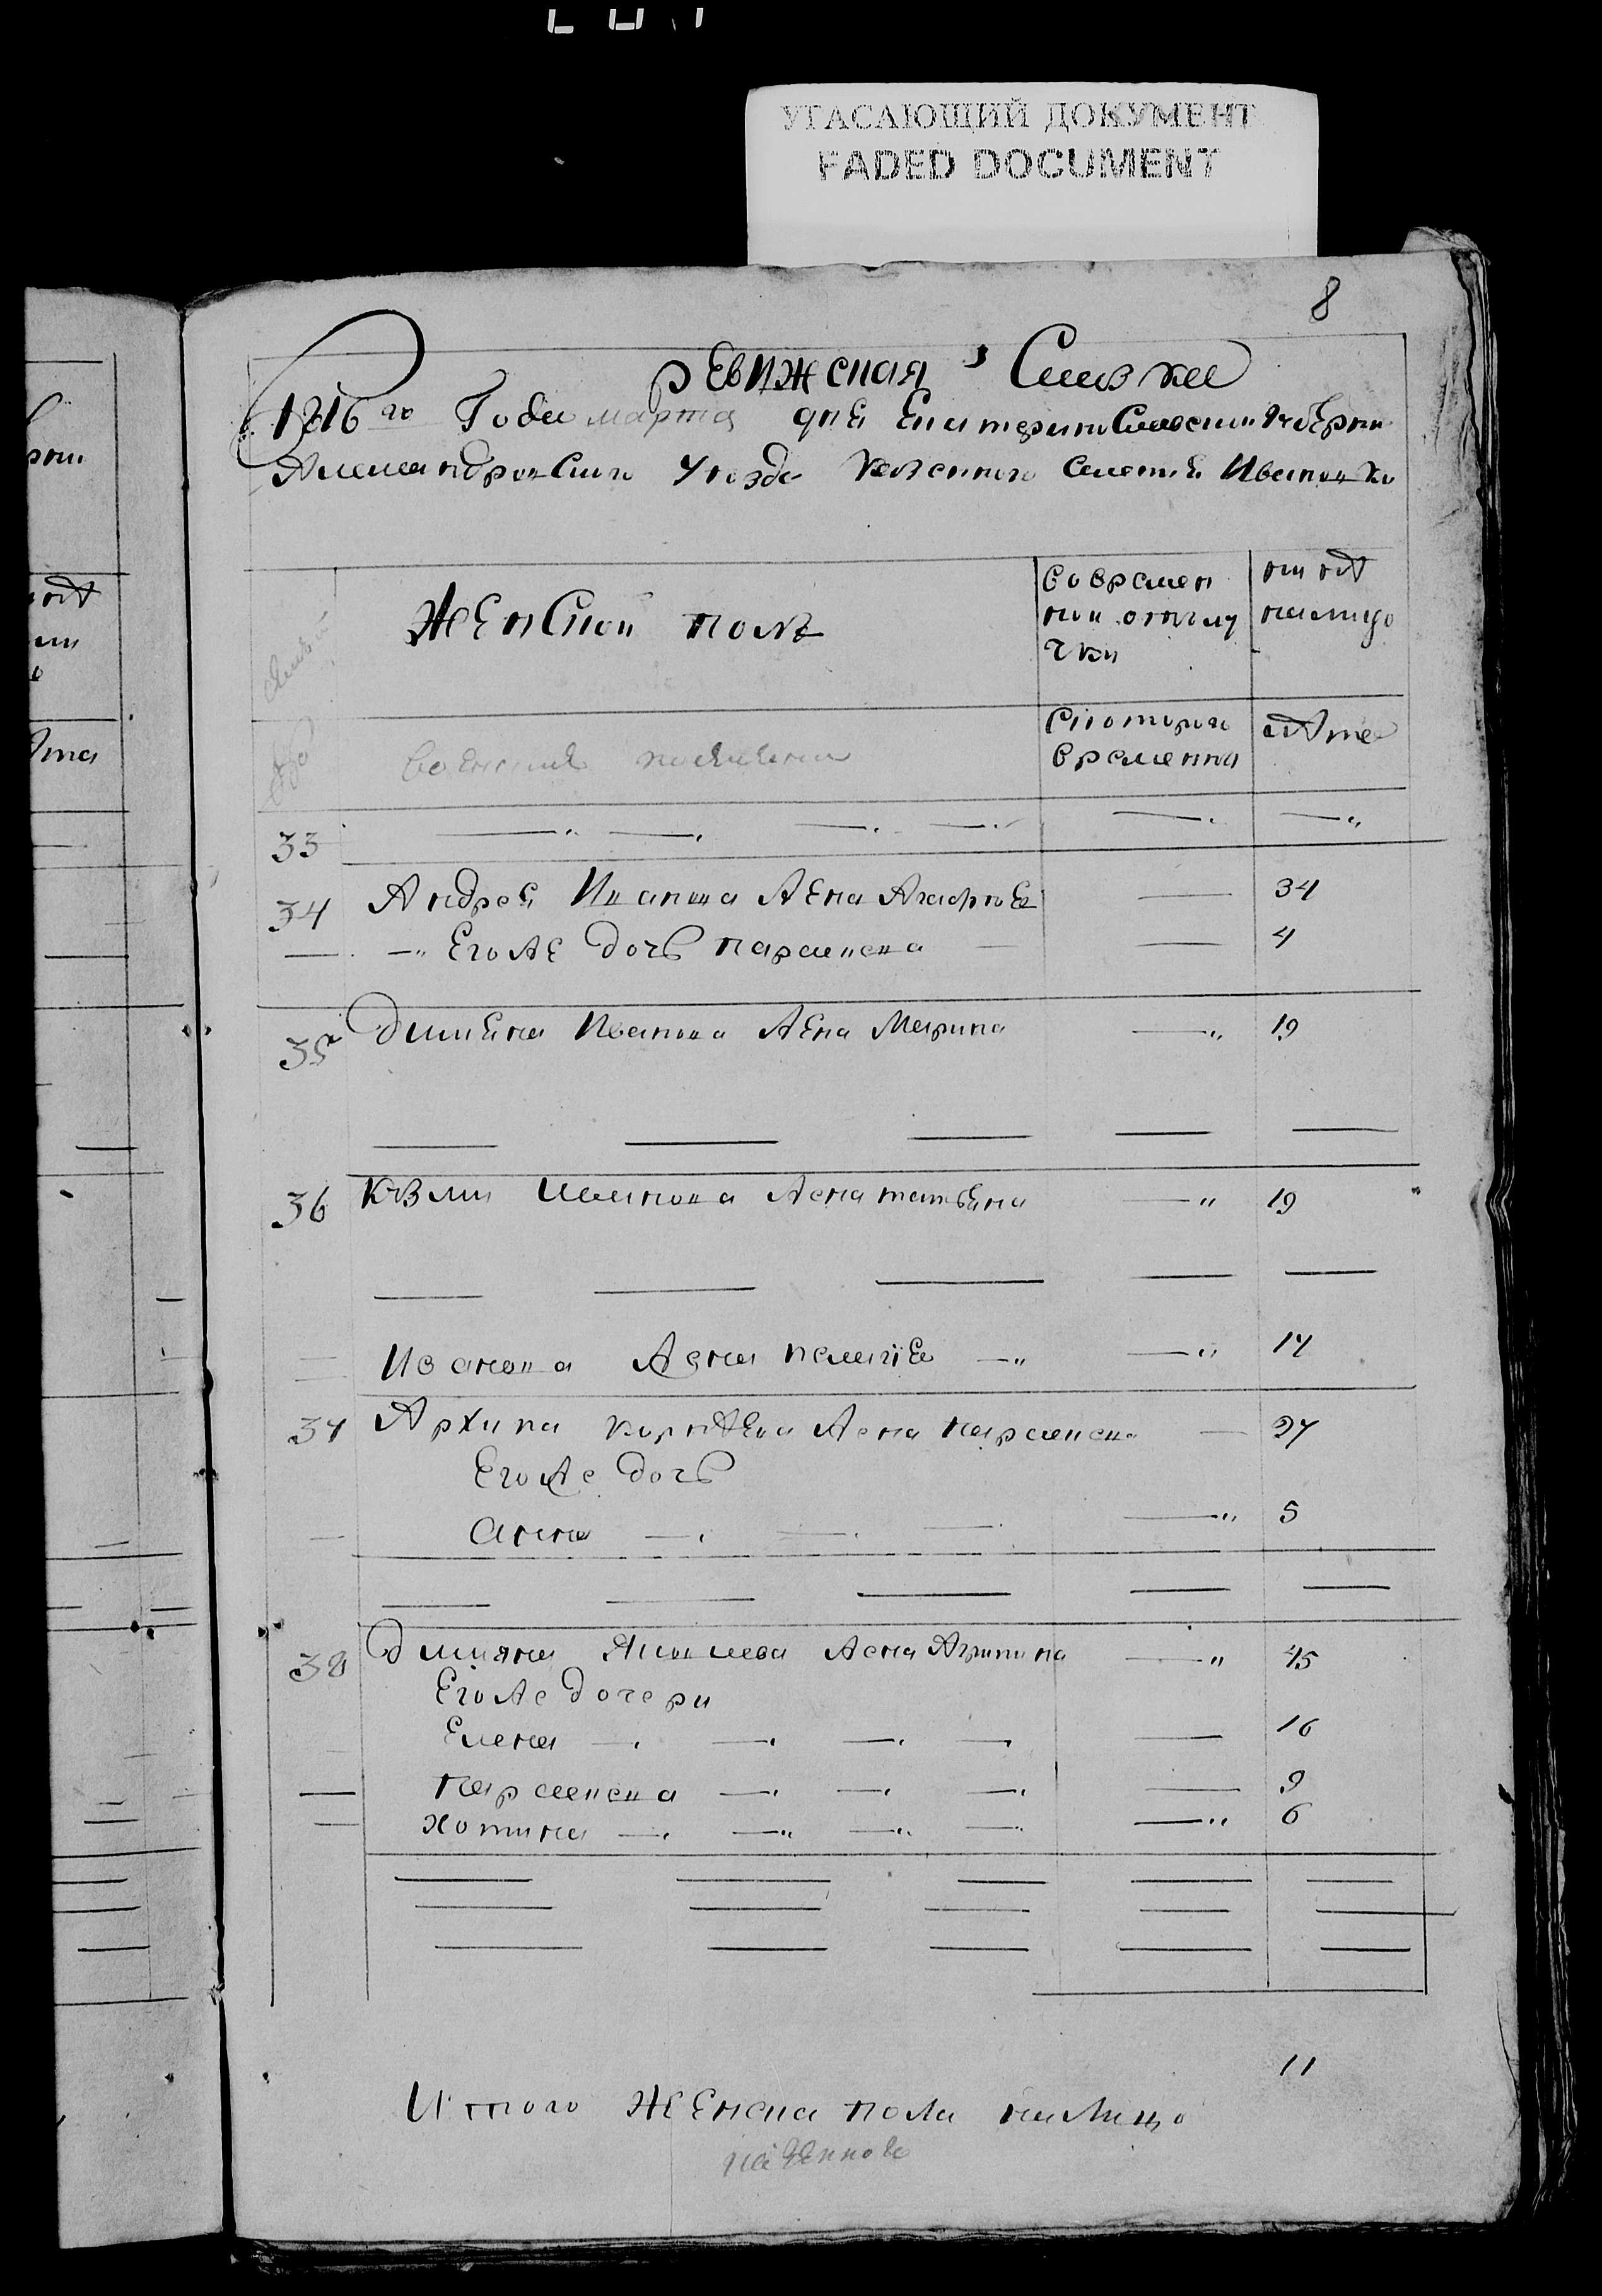 УГАСАЮЩИЙ ДОКУМЕНТ
FADED DOCUMENT
8
ревижская Сказка
1816 го Года марта дня Екатеринославской губерни
Александровского уезда казенного селения Ивановки
женской полъ
во времен
ной отлу
чки
ныне
налицо
с которого
времени
лета
33
34 Андрея Иванова жена Агафия 34
Его же дочь параскева 4
35 Дмияна Иванова жена Марина 19
36 Кузми Иванова жена татьяна 19
Иванова жена пелагея 17
37 Архипа корнеева жена параскева 27
Его же дочь
Анна 5
38 Дмияна Яковлева жена Агрипина 45
Его же дочери
Елена 16
параскева 9
хотина 6
11
Итого женска пола налицо